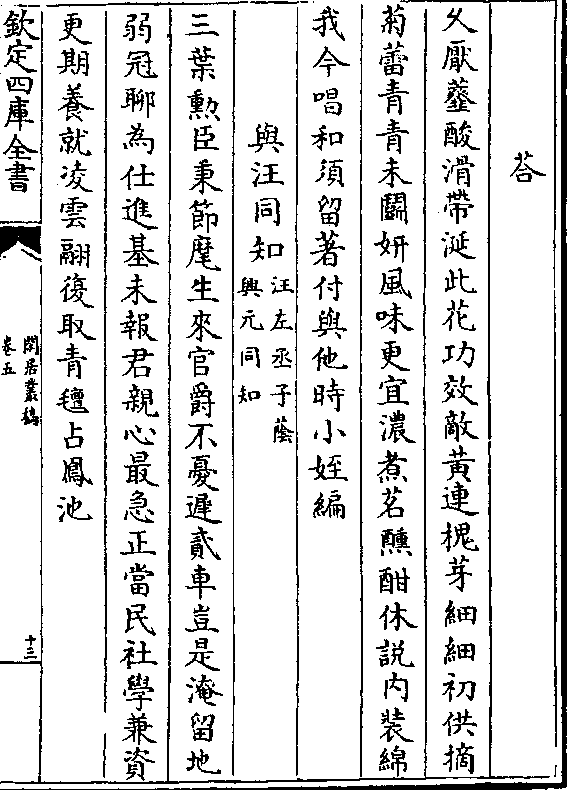 荅
乆厭虀酸滑帶涎此花功效敵黄連槐芽細細初供摘
菊蕾青青未鬭妍風味更宜濃煮茗醺酣休説内装綿
我今唱和須留著付與他時小姪編
與汪同知汪左丞子蔭
興元同知
三葉勲臣秉節麾生來官爵不憂遲貳車豈是淹留地
弱冠聊為仕進基未報君親心最急正當民社學兼資
更期養就凌雲翮復取青氊占鳳池
欽定四庫全書
閒居叢稿
卷五
十三